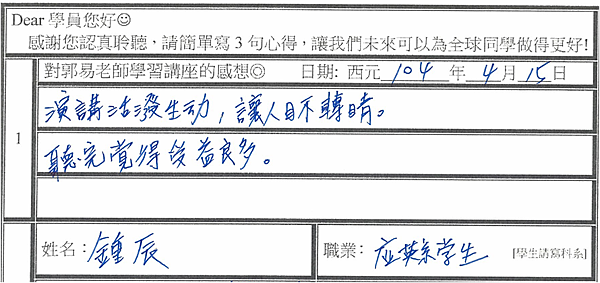 Dear 學員您好☺
感謝您認真聆聽，請簡單寫 3 句心得，讓我們未來可以為全球同學做得更好!
對郭易老師學習講座的感想◎ 日期: 西元 104 年 4 月 15 日
1
演講活潑生动，讓人目不轉睛。
聽完覺得受益良多。
姓名：鍾辰 職業：应英系学生 [學生請寫科系]